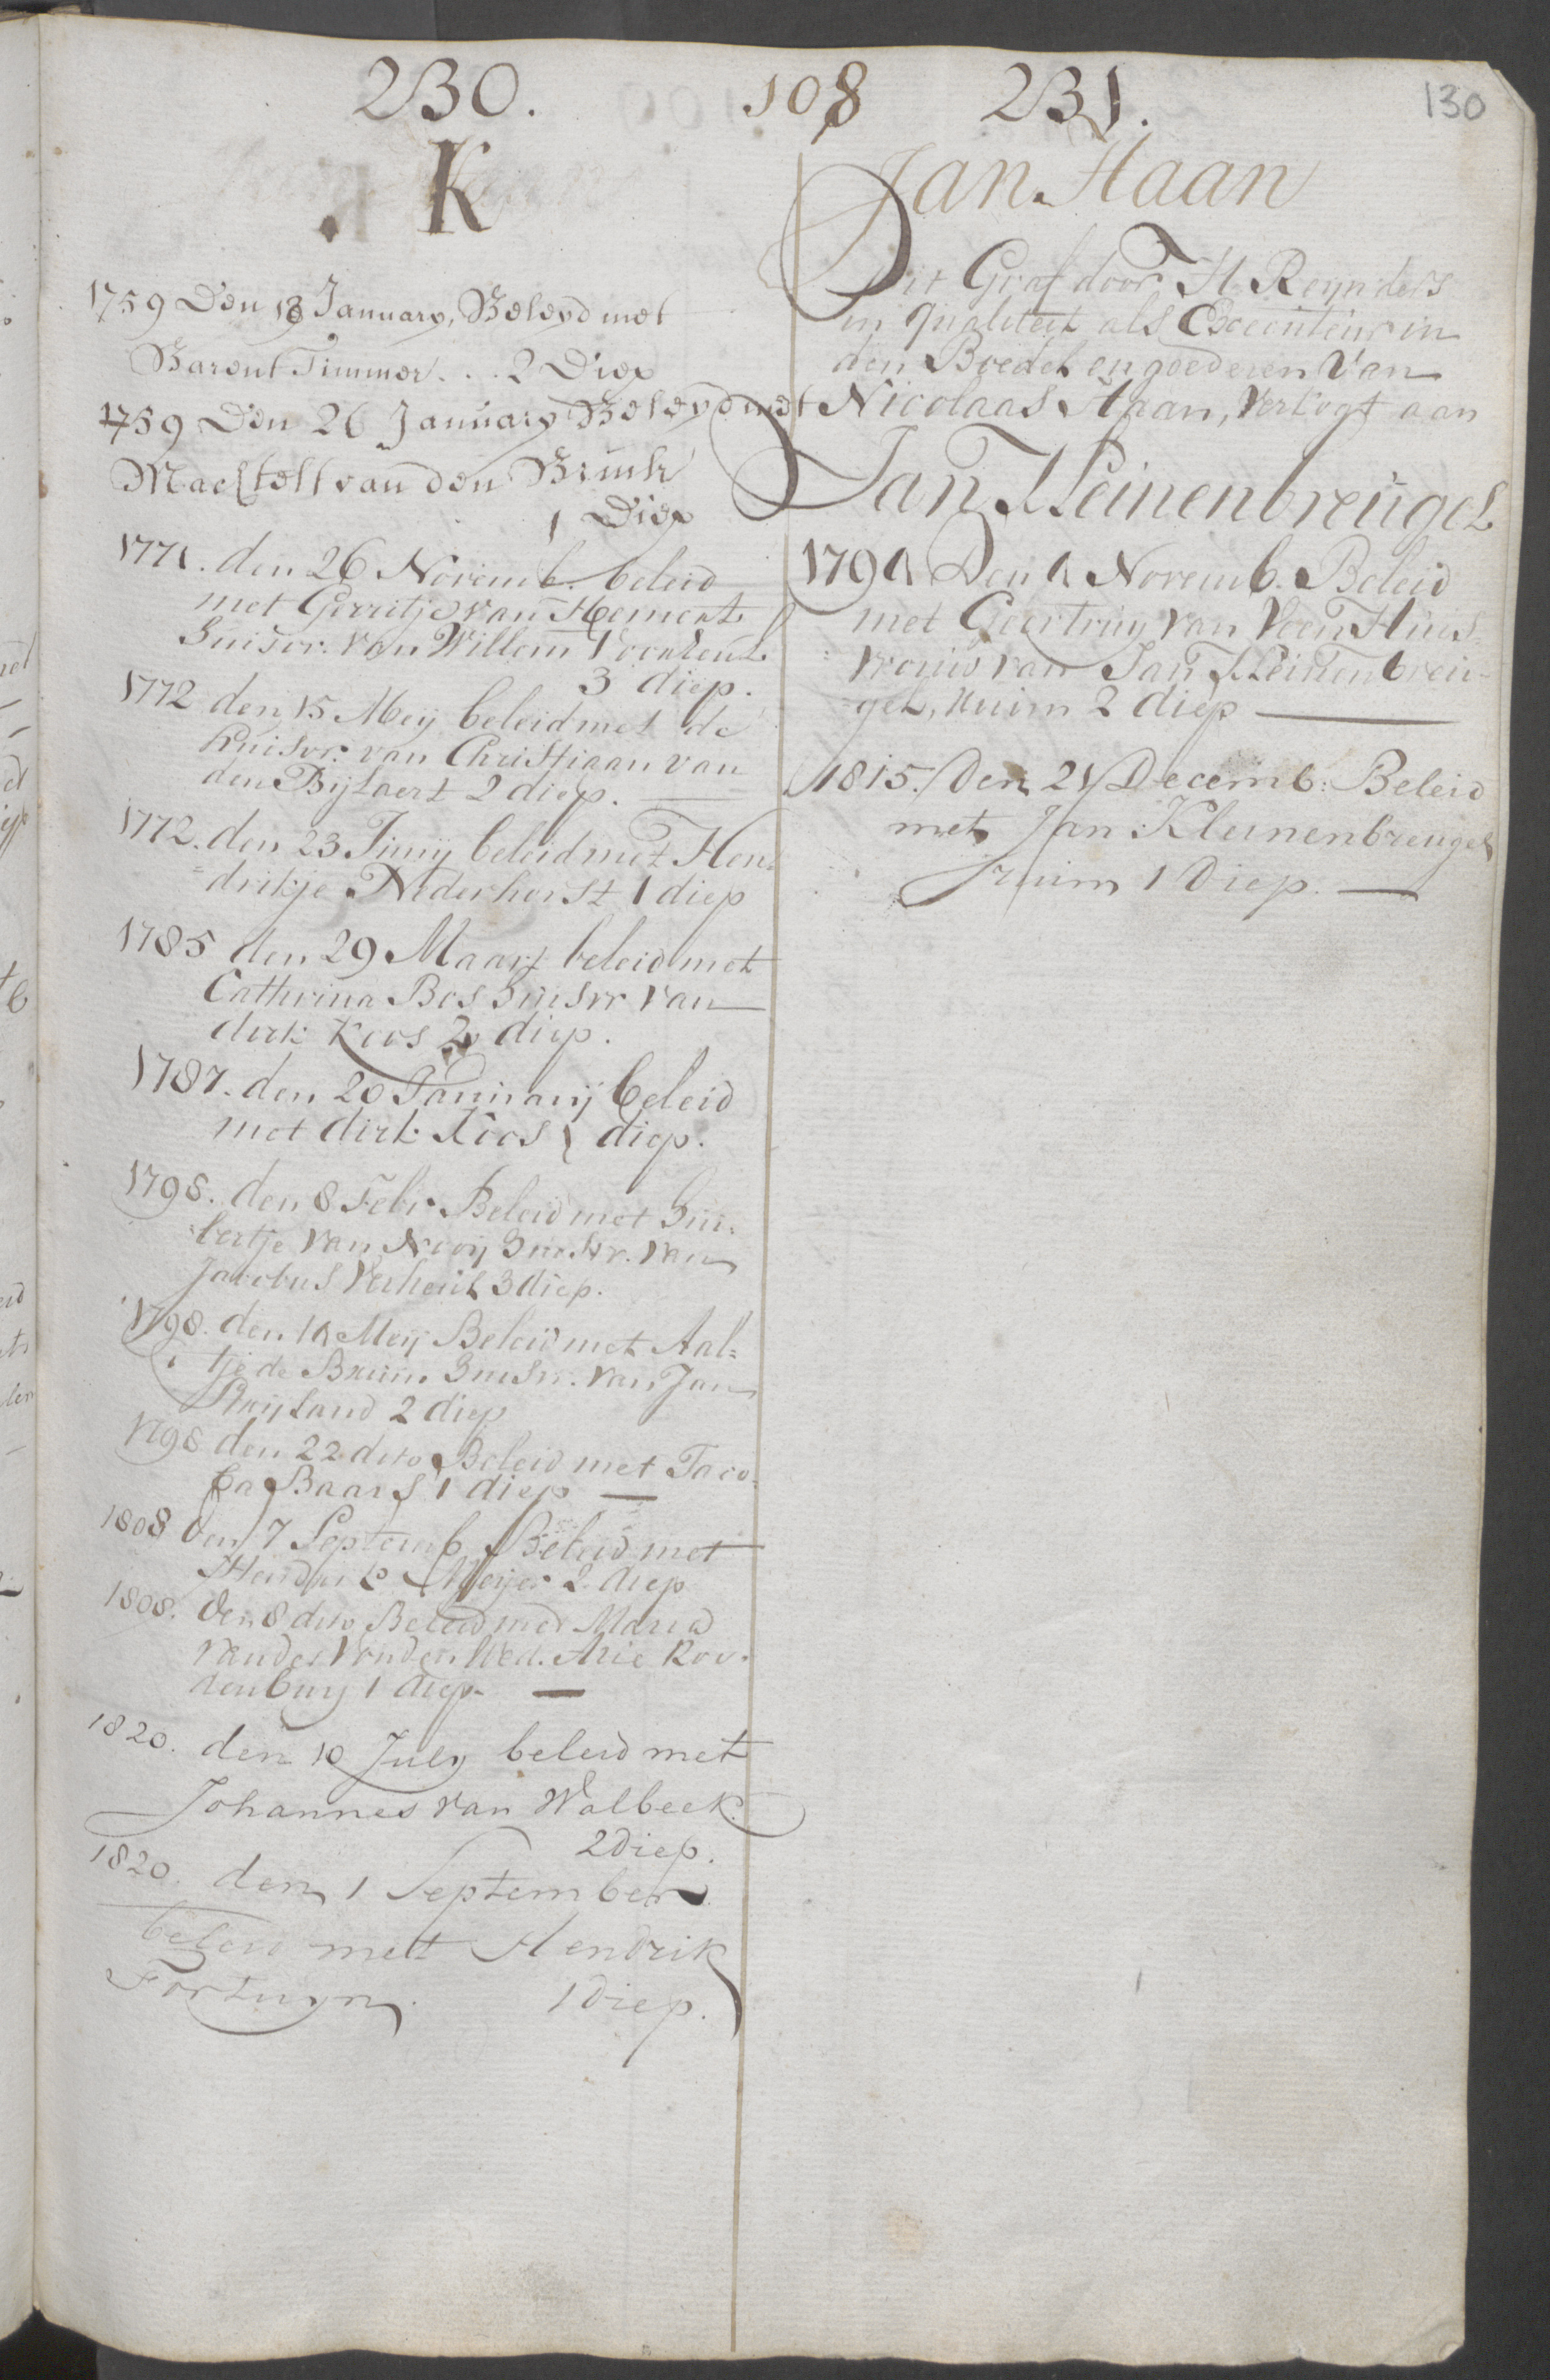 130
108
230.
K
1759 Den 18 January, Beleyd met
Barent Timmer . . . 2 Diep
1759 Den 26 January Beleyd met
Machtelt van den Brink
1 Diep
1771. den 26 Novemb. beleid
met Gerritje van Hement
huisvr. van Willem
3 diep.
1772 den 15 Meij beleid met de
huisvr: van Christiaan van
den Bijlaert 2 diep.
1772. den 23 Junij beleid met Hen=
=drikje Nederhorst 1 diep
1785 den 29 Maart beleid met
Cathrina Bos huisvr van
dirk Koos 2 diep.
1787. den 20 Januarij beleid
met dirk Koos 1 diep.
1798. den 8 Febr. Beleid met Hui=
bertje van Nooij Huisvr. van
Jacobus Verheul 3 diep.
1798. den 14 Meij Beleid met Aal=
tje de Bruin Huisvr. van Jan
2 diep
1798 den 22 dito Beleid met Jaco=
ba Baars 1 diep
1808 Den 7 Septemb Beleid met
Hendrik Meijer 2 diep
1808. Den 8 dito Beleid met Maria
van der Wed. Arie Roo=
denburg 1 diep
1820. den 10 July beleid met
Johannes van Walbeek.
2 diep.
1820. den 1 September
beleid met Hendrik
Fortuyn. 1 diep.
231.
Jan Haan
Dit Graf door H. Reynders
in qualiteit als Executeur in
den Boedel en goederen van
Nicolaas Haan, verkogt aan
Jan Kleinenbreugel
1794 Den 4 Novemb. Beleid
met Geertruy van Veen Huis=
vrouw van Jan Kleinenbreu=
gel, ruim 2 diep
1815. Den 21 Decemb: Beleid
met Jan Kleinenbreugel
ruim 1 Diep.